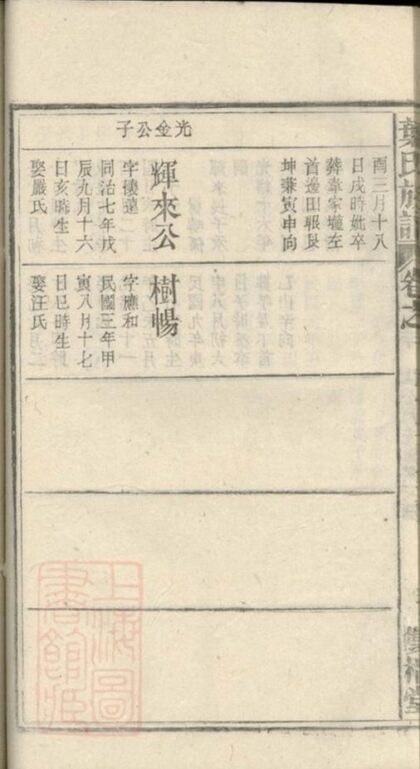 葉氏族譜 卷之
光金公子
酉三月十八
日戌時妣卒
葬韋家壠左
首邊田眼艮
坤兼寅申向
輝來公
字接遠
同治七年戊
辰九月十六
日亥時生
娶嚴氏
樹暢
字應和
民國三年甲
寅八月十七
日巳時生
娶汪氏
上海圖
書館藏